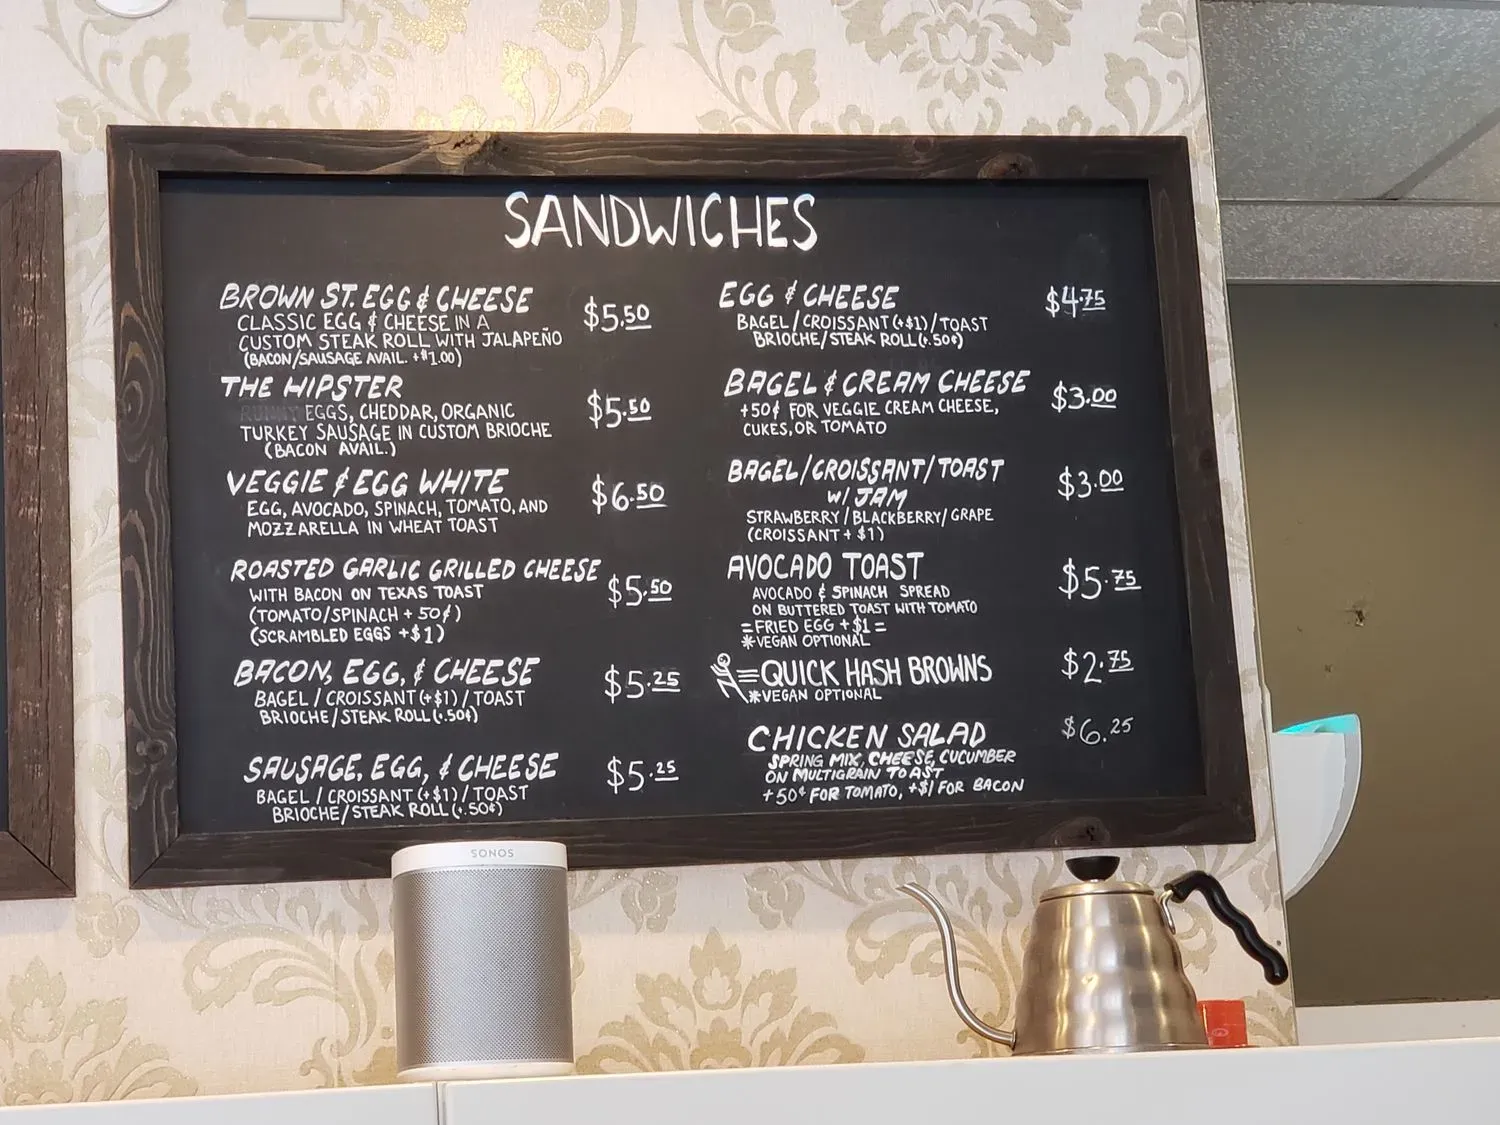 SANDWICHES
BROWN ST. EGG & CHEESE $5.50
CLASSIC EGG & CHEESE IN A
CUSTOM STEAK ROLL WITH JALAPEÑO
(BACON/SAUSAGE AVAIL. +$1.00)
THE HIPSTER
EGGS, CHEDDAR, ORGANIC $5.50
TURKEY SAUSAGE IN CUSTOM BRIOCHE
(BACON AVAIL.)
VEGGIE & EGG WHITE $6.50
EGG, AVOCADO, SPINACH, TOMATO, AND
MOZZARELLA IN WHEAT TOAST
ROASTED GARLIC GRILLED CHEESE $5.50
WITH BACON ON TEXAS TOAST
(TOMATO/SPINACH + 50¢)
(SCRAMBLED EGGS +$1)
BACON, EGG, & CHEESE $5.25
BAGEL / CROISSANT (+$1) / TOAST
BRIOCHE/STEAK ROLL (+.50¢)
SAUSAGE, EGG, & CHEESE $5.25
BAGEL / CROISSANT (+$1) / TOAST
BRIOCHE/STEAK ROLL (+.50¢)
EGG & CHEESE $4.75
BAGEL / CROISSANT (+$1) / TOAST
BRIOCHE/STEAK ROLL (+.50¢)
BAGEL & CREAM CHEESE $3.00
+50¢ FOR VEGGIE CREAM CHEESE,
CUKES, OR TOMATO
BAGEL/CROISSANT/TOAST $3.00
W/ JAM
STRAWBERRY / BLACKBERRY / GRAPE
(CROISSANT + $1)
AVOCADO TOAST $5.75
AVOCADO & SPINACH SPREAD
ON BUTTERED TOAST WITH TOMATO
=FRIED EGG + $1 =
*VEGAN OPTIONAL
QUICK HASH BROWNS $2.75
*VEGAN OPTIONAL
CHICKEN SALAD $6.25
SPRING MIX, CHEESE, CUCUMBER
ON MULTIGRAIN TOAST
+50¢ FOR TOMATO, +$1 FOR BACON
SONOS